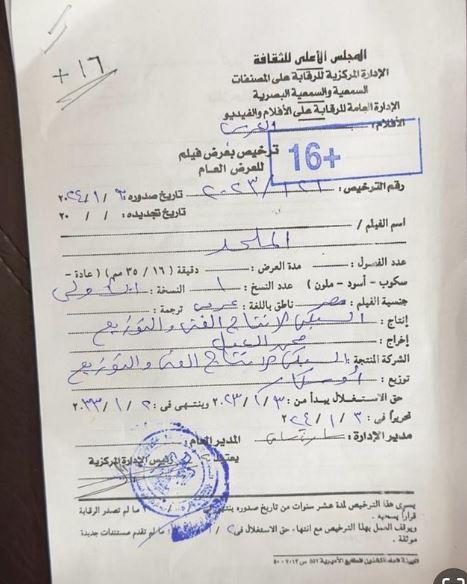 + ١٦
المجلس الأعلى للثقافة
الإدارة المركزية للرقابة على المصنفات
السمعية والسمعية البصرية
الإدارة العامة للرقابة على الأفلام والفيديو
الأفلام
16+
ترخيص بعرض فيلم
للعرض العام
رقم الترخيص : ١٢١ / ٢٠٢٣ تاريخ صدوره ٣ / ١ / ٢٠٢٤
تاريخ تجديده : / / ٢٠
اسم الفيلم /
الملحد
عدد الفصول : مدة العرض : دقيقة ( ١٦ / ٣٥ مم ) ( عادة -
سكوب - أسود - ملون ) عدد النسخ : ١ النسخة : الأولى
جنسية الفيلم : مصر ناطق باللغة : عربى ترجمة :
إنتاج : السبكى لإنتاج الفنى والتوزيع
إخراج : محمد العدل
الشركة المنتجة : السبكى لإنتاج الفنى والتوزيع
توزيع : أوسكار
حق الاستغلال يبدأ من : ٣ / ١ / ٢٠٢٣ وينتهى فى : ٢ / ١ / ٢٠٣٣
تحريرا فى : ٣ / ١ / ٢٠٢٤
مدير الإدارة : المدير العام :
يعتمد ، رئيس الإدارة المركزية
يسرى هذا الترخيص لمدة عشر سنوات من تاريخ صدوره ما لم تصدر الرقابة
قرارا بسحبه .
ويوقف العمل بهذا الترخيص مع انتهاء حق الاستغلال فى ما لم تقدم مستندات جديدة
موثقة .